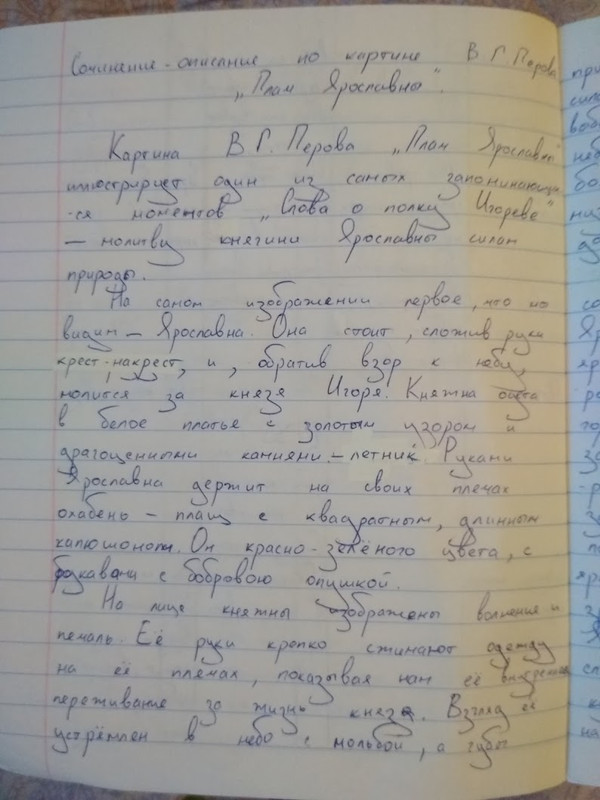 Сочинение-описание по картине В Г. Перова
„Плач Ярославны".
Картина В Г. Перова „Плач Ярославны"
иллюстрирует один из самых запоминающих
-ся моментов „Слова о полку Игореве"
— молитву княгини Ярославны силам
природы.
На самом изображении первое, что мы
видим — Ярославна. Она стоит, сложив руки
крест-накрест, и, обратив взор к небу,
молится за князя Игоря. Княжна одета
в белое платье с золотым узором и
драгоценными камнями – летник. Руками
Ярославна держит на своих плечах
охабень – плащ с квадратным, длинным
капюшоном. Он красно-зелёного цвета, с
рукавами с бобровою опушкой.
На лице княжны изображены волнение и
печаль. Её руки крепко сжимают одежду
на её плечах, показывая нам её внутреннее
переживание за жизнь князя. Взгляд её
устремлён в небо с мольбой, а губы